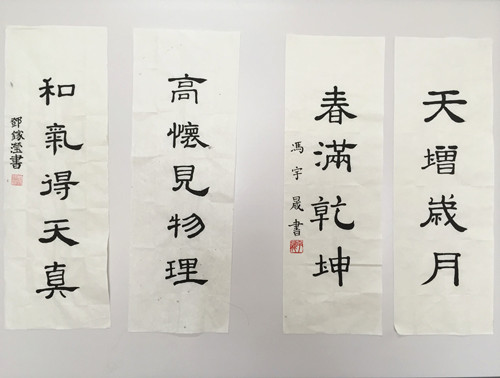 天增歲月
春滿乾坤
馮宇晟書
高懷見物理
和氣得天真
鄧鎵瀅書